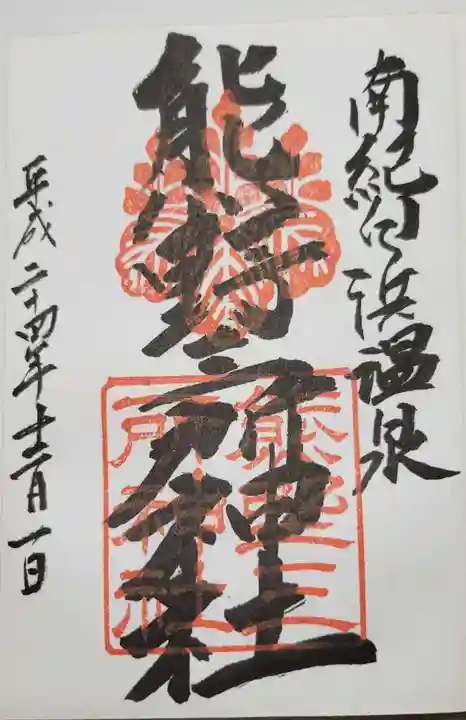 南紀白浜温泉
熊野三所神社
平成二十四年十二月一日
熊野三
所神社